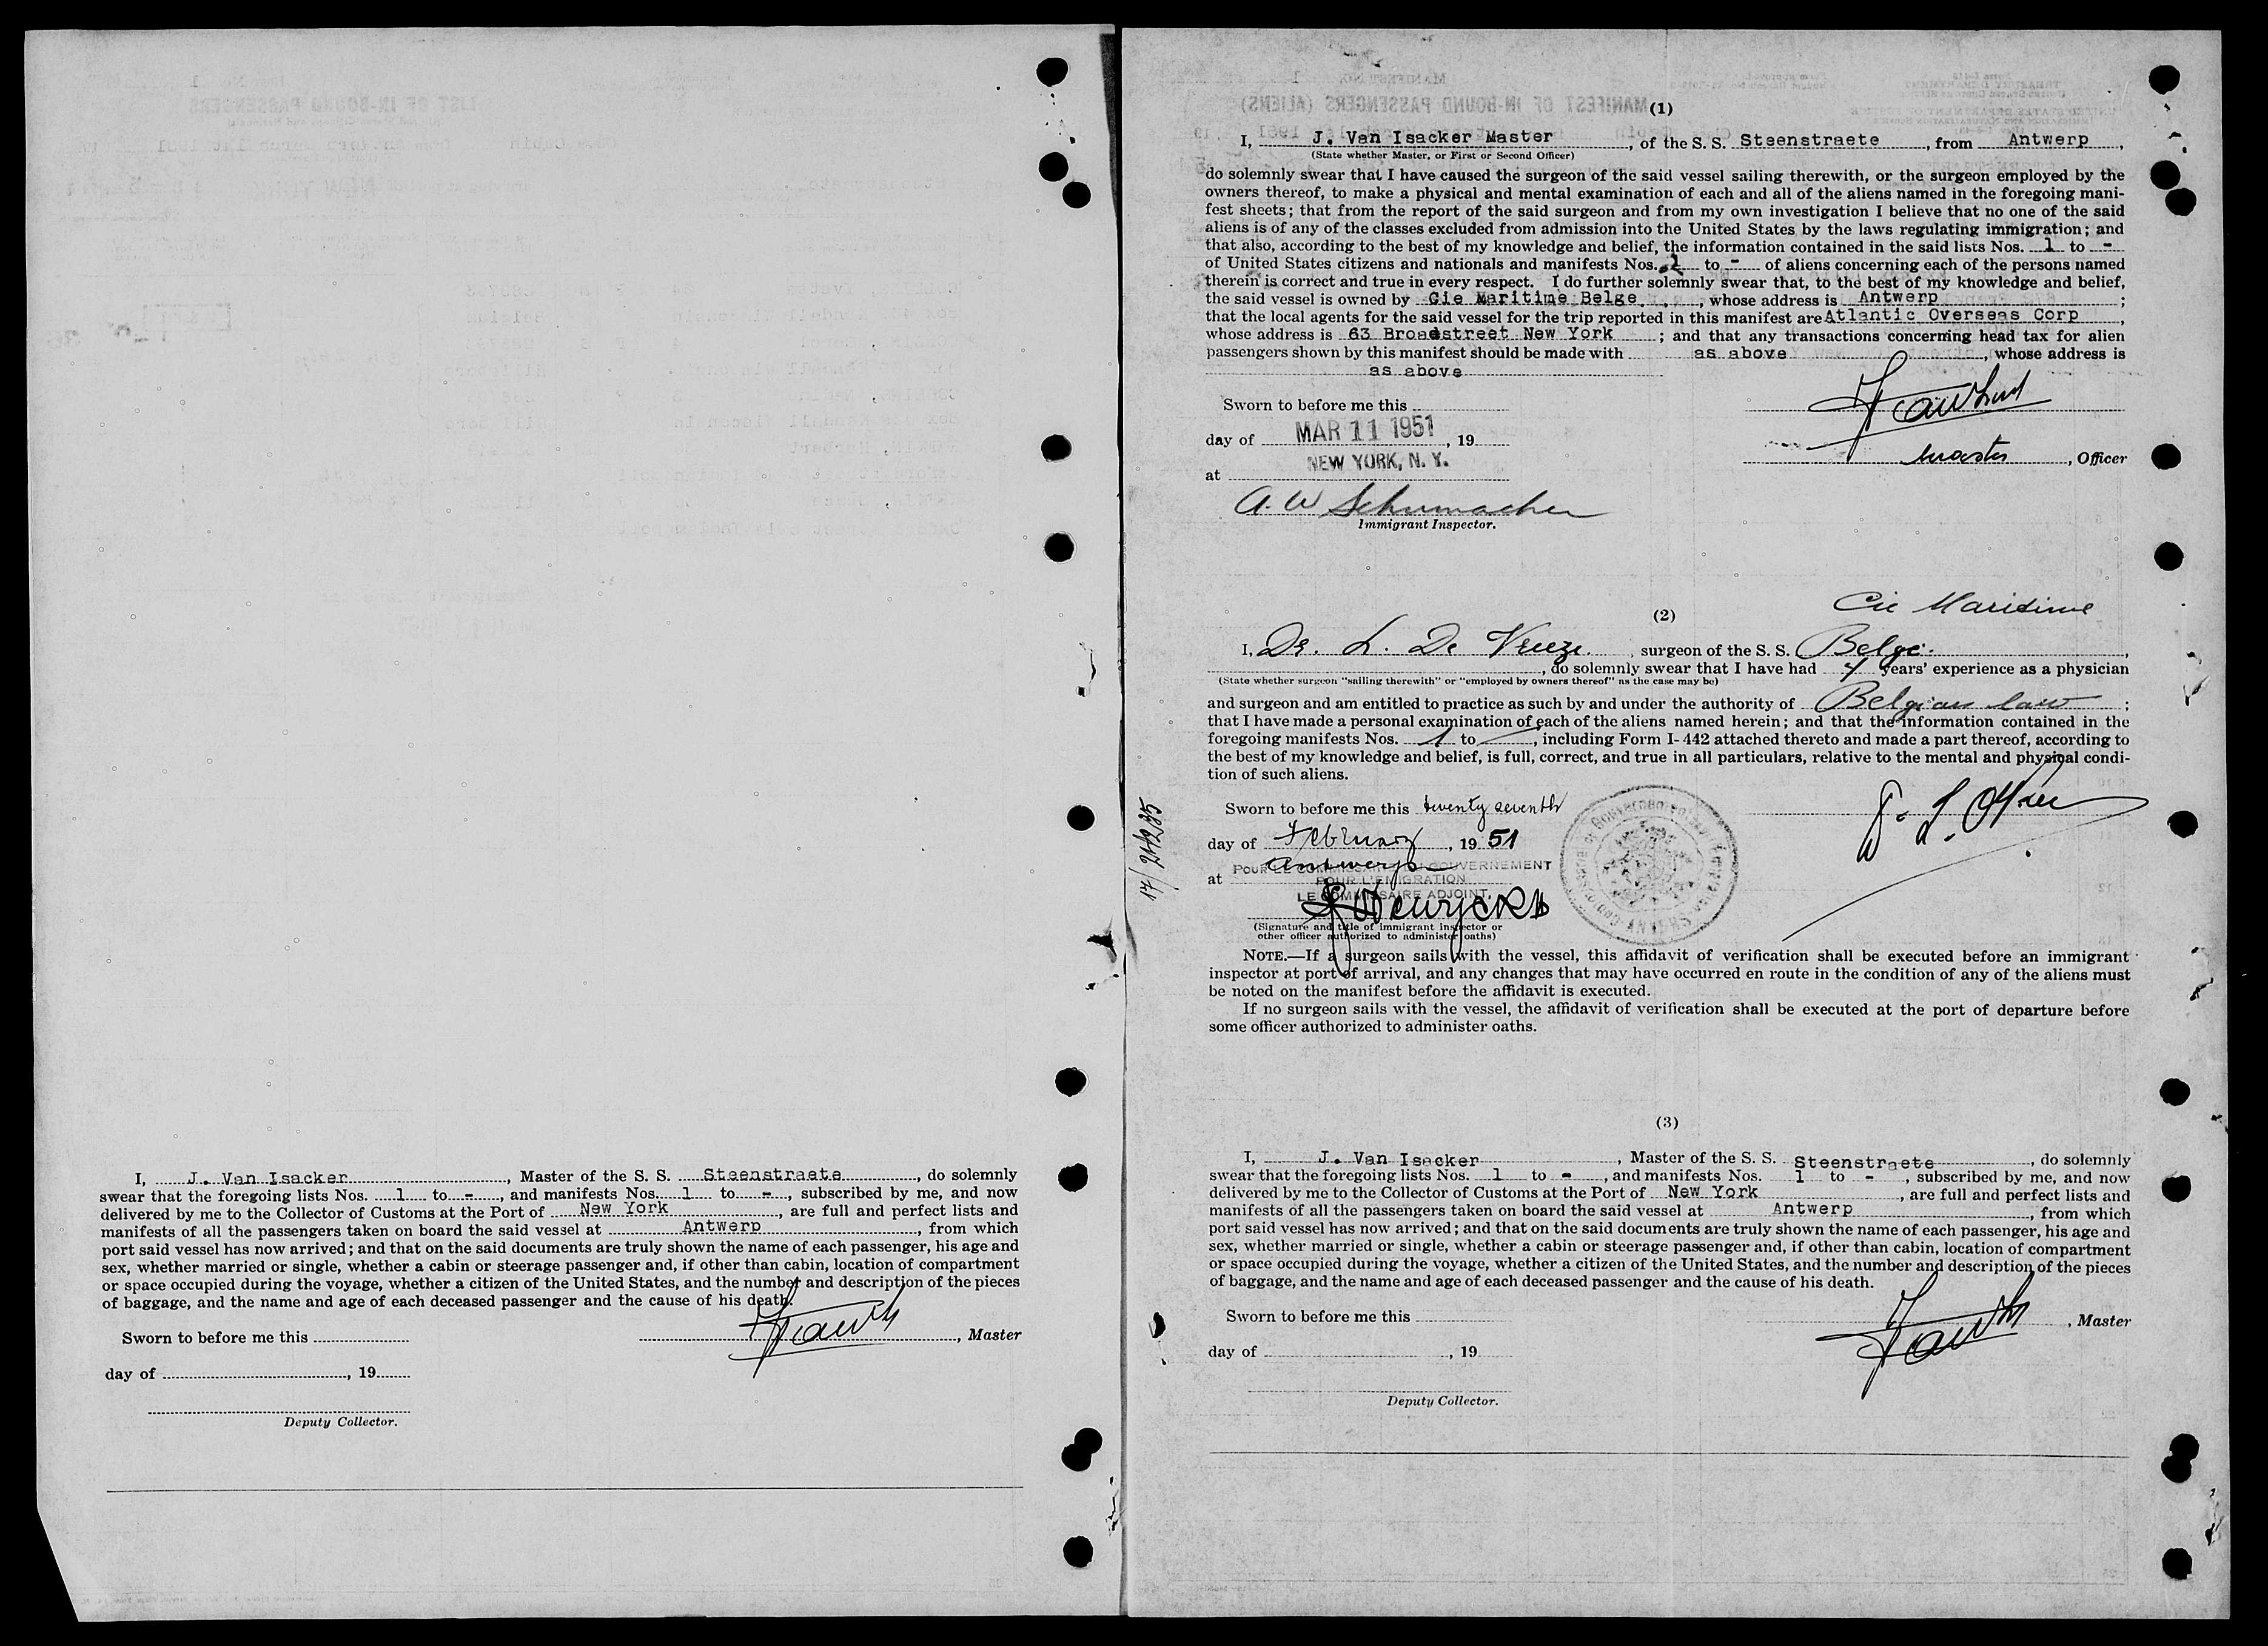 I, J. Van Isacker, Master of the S. S. Steenstraete, do solemnly
swear that the foregoing lists Nos. 1 to -, and manifests Nos. 1 to -, subscribed by me, and now
delivered by me to the Collector of Customs at the Port of New York, are full and perfect lists and
manifests of all the passengers taken on board the said vessel at Antwerp, from which
port said vessel has now arrived; and that on the said documents are truly shown the name of each passenger, his age and
sex, whether married or single, whether a cabin or steerage passenger and, if other than cabin, location of compartment
or space occupied during the voyage, whether a citizen of the United States, and the number and description of the pieces
of baggage, and the name and age of each deceased passenger and the cause of his death.
Sworn to before me this
, Master
day of , 19
Deputy Collector.
(1)
I, J. Van Isacker Master, of the S. S. Steenstraete, from Antwerp,
(State whether Master, or First or Second Officer)
do solemnly swear that I have caused the surgeon of the said vessel sailing therewith, or the surgeon employed by the
owners thereof, to make a physical and mental examination of each and all of the aliens named in the foregoing mani-
fest sheets; that from the report of the said surgeon and from my own investigation I believe that no one of the said
aliens is of any of the classes excluded from admission into the United States by the laws regulating immigration; and
that also, according to the best of my knowledge and belief, the information contained in the said lists Nos. 1 to -
of United States citizens and nationals and manifests Nos. 1 to - of aliens concerning each of the persons named
therein is correct and true in every respect. I do further solemnly swear that, to the best of my knowledge and belief,
the said vessel is owned by Cie Maritime Belge, whose address is Antwerp;
that the local agents for the said vessel for the trip reported in this manifest are Atlantic Overseas Corp,
whose address is 63 Broadstreet New York; and that any transactions concerning head tax for alien
passengers shown by this manifest should be made with as above, whose address is
as above
Sworn to before me this
day of MAR 11 1951, 19
master, Officer
at NEW YORK, N. Y.
A. W Schumacher
Immigrant Inspector.
(2)
Cie Maritime
I, Dr. L. De , surgeon of the S. S. Belge.,
, do solemnly swear that I have had years' experience as a physician
(State whether surgeon "sailing therewith" or "employed by owners thereof" as the case may be)
and surgeon and am entitled to practice as such by and under the authority of Belgian law;
that I have made a personal examination of each of the aliens named herein; and that the information contained in the
foregoing manifests Nos. 1 to , including Form I-442 attached thereto and made a part thereof, according to
the best of my knowledge and belief, is full, correct, and true in all particulars, relative to the mental and physical condi-
tion of such aliens.
Sworn to before me this twenty seventh
day of February, 1951
at Antwerp
POUR LE COMMISSAIRE DU GOUVERNEMENT
POUR L'EMIGRATION
LE COMMISSAIRE ADJOINT,
(Signature and title of immigrant inspector or
other officer authorized to administer oaths)
NOTE.—If a surgeon sails with the vessel, this affidavit of verification shall be executed before an immigrant
inspector at port of arrival, and any changes that may have occurred en route in the condition of any of the aliens must
be noted on the manifest before the affidavit is executed.
If no surgeon sails with the vessel, the affidavit of verification shall be executed at the port of departure before
some officer authorized to administer oaths.
(3)
I, J. Van Isacker, Master of the S. S. Steenstraete, do solemnly
swear that the foregoing lists Nos. 1 to -, and manifests Nos. 1 to -, subscribed by me, and now
delivered by me to the Collector of Customs at the Port of New York, are full and perfect lists and
manifests of all the passengers taken on board the said vessel at Antwerp, from which
port said vessel has now arrived; and that on the said documents are truly shown the name of each passenger, his age and
sex, whether married or single, whether a cabin or steerage passenger and, if other than cabin, location of compartment
or space occupied during the voyage, whether a citizen of the United States, and the number and description of the pieces
of baggage, and the name and age of each deceased passenger and the cause of his death.
Sworn to before me this
, Master
day of , 19
Deputy Collector.